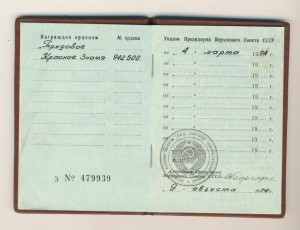 Награжден орденом № ордена
Трудовое
Красное Знамя 942500
З № 479939
Указом Президиума Верховного Совета СССР
от 4 марта 1974 г.
от 19 г.
от 19 г.
от 19 г.
от 19 г.
от 19 г.
от 19 г.
от 19 г.
Верховного Совета СССР
9 августа 1974 г.